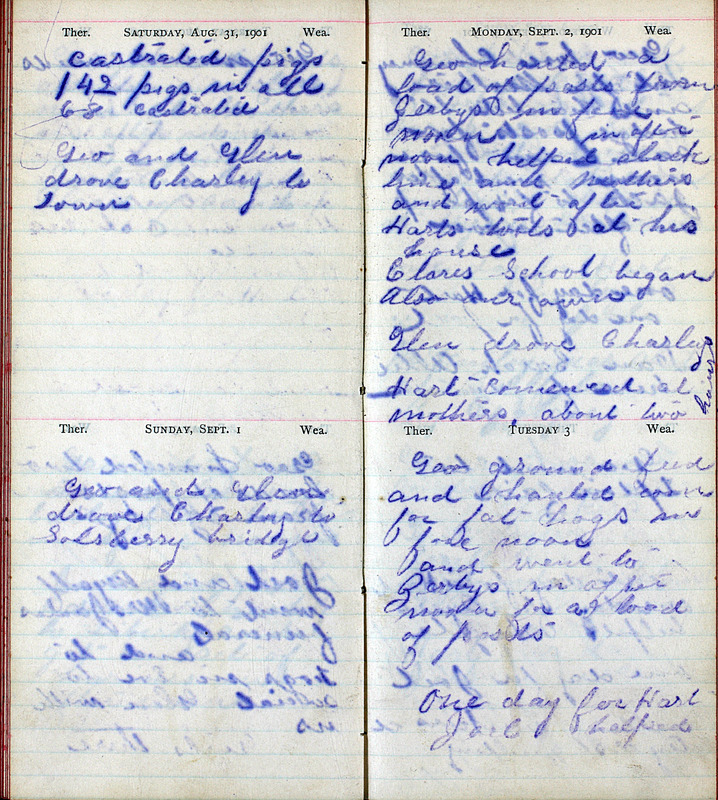 Ther. SATURDAY, AUG. 31, 1901 Wea.
castrated pigs
142 pigs in all
68 castrated
Geo and Glen
drove Charley to
town
Ther. SUNDAY, SEPT. 1 Wea.
Geo and Glen
drove Charley to
Solsberry bridge
Ther. MONDAY, SEPT. 2, 1901 Wea.
Geo hauled a
load of posts from
Zerbys in fore
noon in after
noon helped
line and mothers
and went after
Harts tools at his
house
Clares School began
Also our
Glen drove Charley
Hart comenced at
mothers, about two
hours
Ther. TUESDAY 3 Wea.
Geo ground feed
and hauled corn
for fat hogs in
fore noon
and went to
Zerbys in after
noon for a load
of posts
One day for Hart
Joel helped